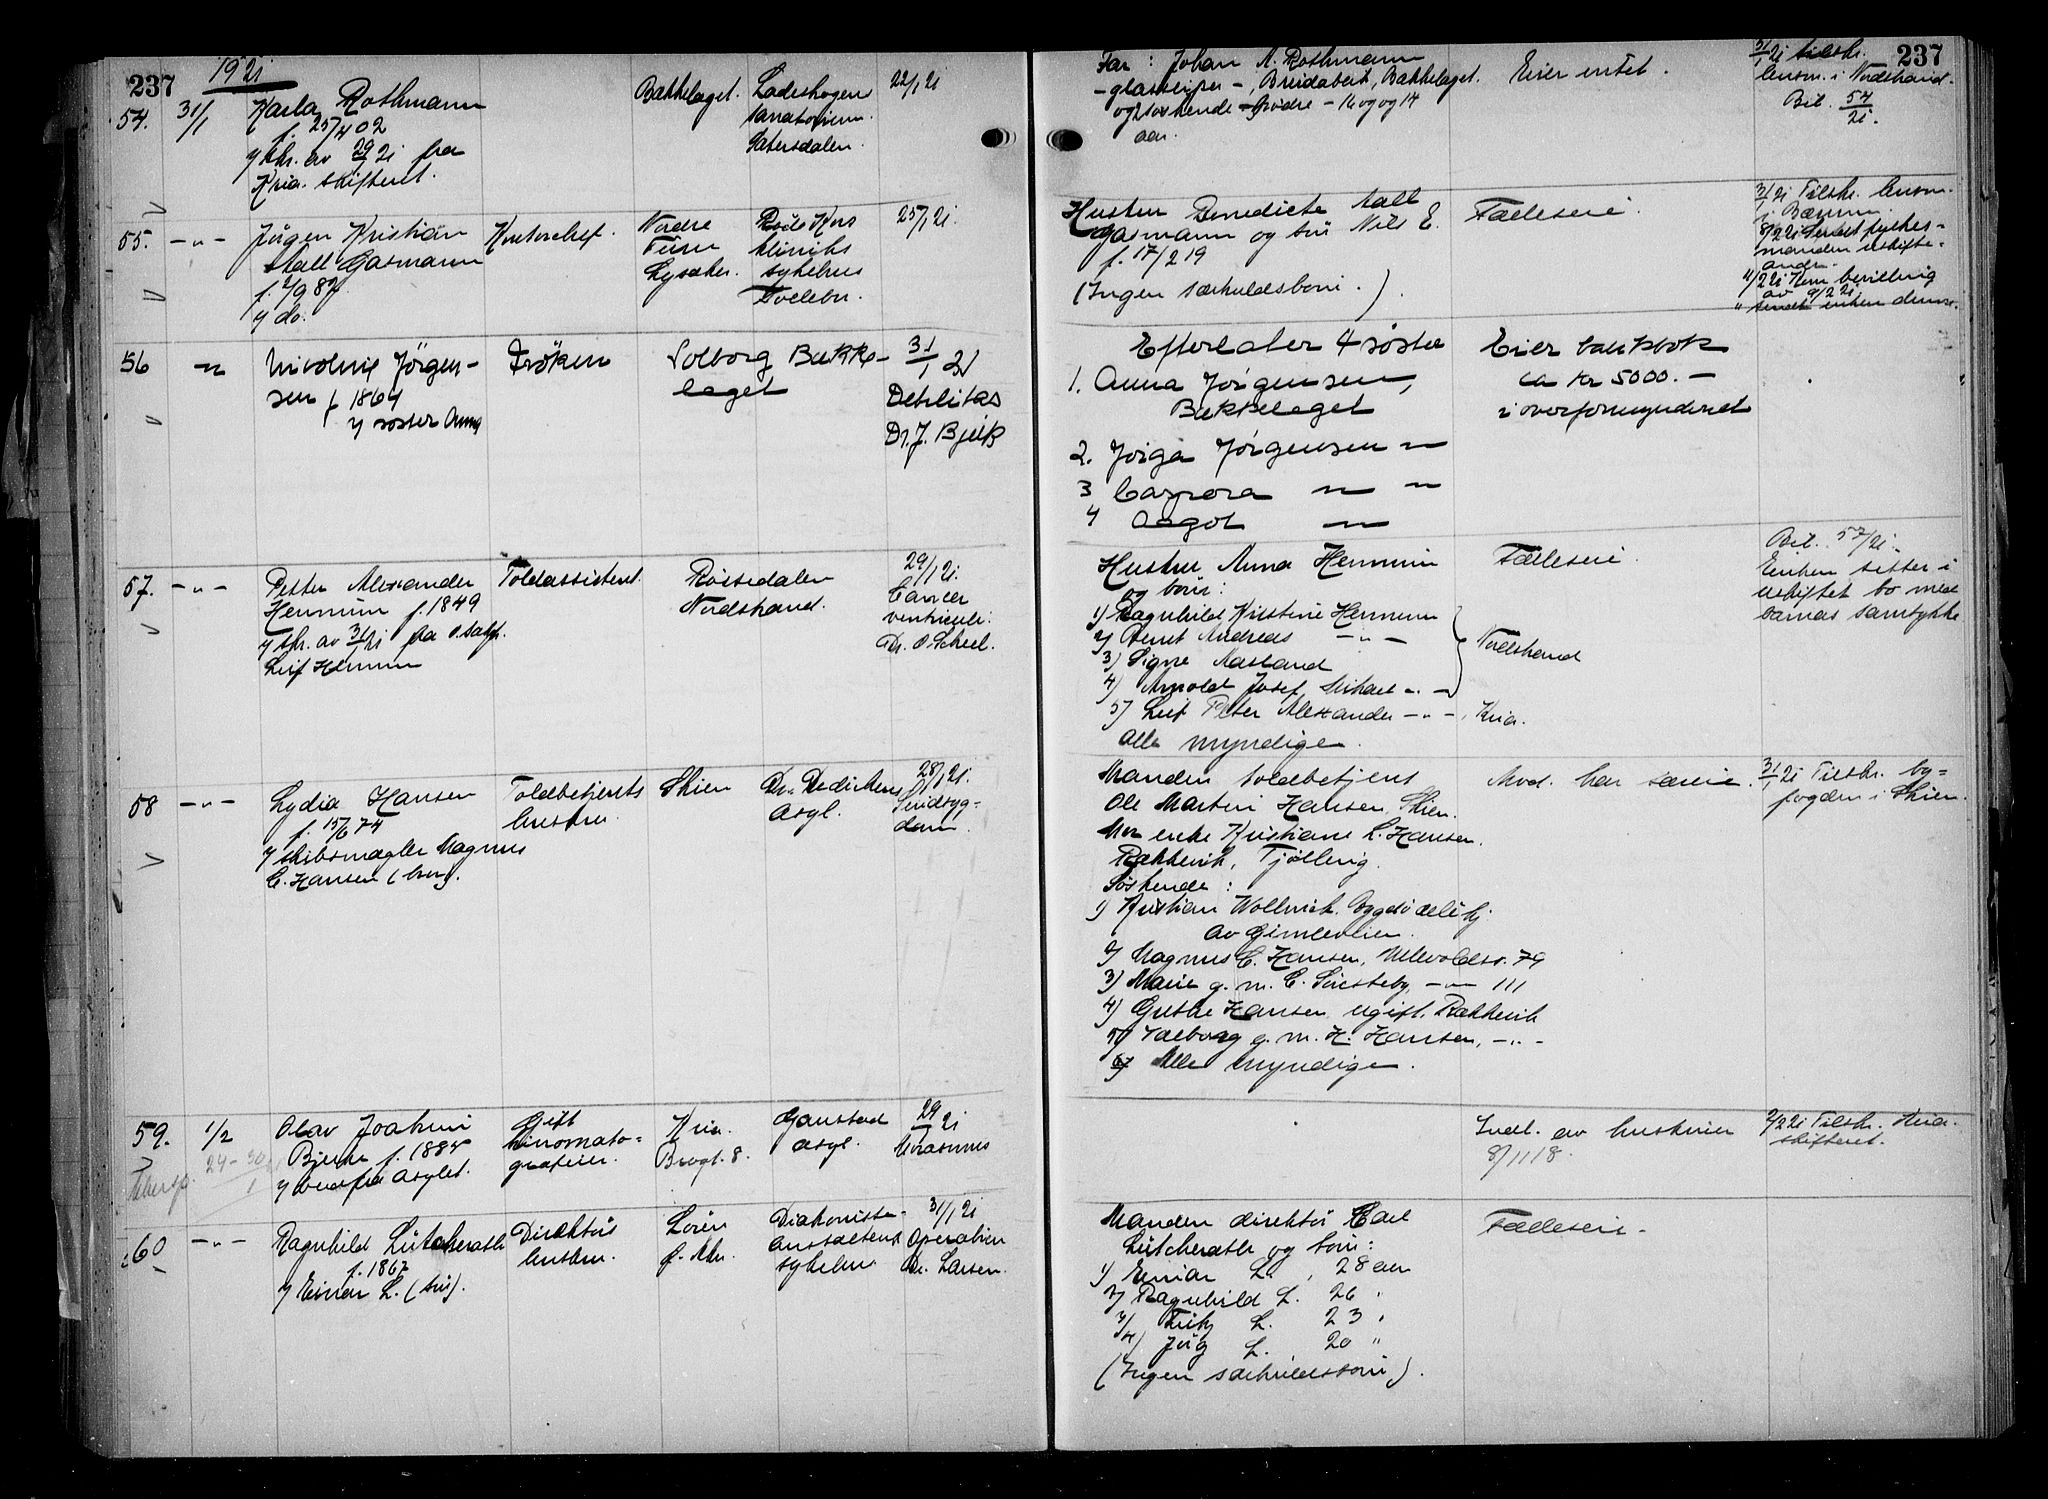 237
1921
237
54.
31/1
Karla Rothmann
f. 25/4 02
skr. av 29/1 21 fra
Kria. skifteret.
Bækkelaget.
Ladeshogen
sanatorium
Sætersdalen.
22/1 21
Far : Johan A. Rothmann
- glassliper -, Breidablik, Bækkelaget.
og søskende - brødre - 16 og 14
aar.
Eier intet.
31/1 21 tilskr.
lensm. i Nordstrand.
Bil. 54/21.
55.
- " -
Jörgen Kristian
Aall Gasmann
f. 2/9 87
y do.
Kontorchef.
Nordre
Furu
Lysaker.
Røde Kors
kliniks
sykehus
25/1 21.
Hustru Benedicte Aall
Gasmann og søn Nils E.
f. 17/2 19
(Ingen særkuldsbørn.)
Fælleseie.
31/1 21 Tilskr. lensm.
i Bærum
av 9/2 21
56
"
Nicoline Jörgen-
sen f 1864
y søster Anna
Frøken
Solborg Bække-
laget
31/1 21
Debilitas
Dr. J. Bjerk
Efterlater 4 søstre
1. Anna Jørgensen,
Bækkelaget
2. Jørga Jørgensen "
3 Caspara " "
4 Aagot "
Eier bankbok
ca kr 5000. -
i overformynderiet
57.
- " -
Petter Alexander
Hennum f. 1849
y skr. av 31/1 21 fra o.sakf.
Leif Hennum
Toldassistent.
Nordstrand.
29/1 21.
Cancer
ventriculi.
Dr. O. Scheel.
Hustru Anna Hennum
og børn:
1) Ragnhild Kristine Hennum
2) Bernt Andreas - " -
3) Signe Aasland
4) Arnold Josef Mikael - " -
Nordstrand
5) Leif Peter Alexander - " -, Kria.
Alle myndige.
Fælleseie.
Bil. 57/21.
Enken sitter i
uskiftet bo med
barnas samtykke
58
- " -
Lydia Hansen
f. 15/6 74
y skibsmægler Magnus
C. Hansen (bror).
Toldbetjents
hustru
Skien
Dr. Dedichens
Asyl.
28/1 21.
Sindssyg-
dom.
Manden toldbetjent
Ole Martin Hansen, Skien.
Mor enke Kristiane L. Hansen.
Rækkevik, Tjølling.
Søskende :
1) Kristian Wollmick. Bygdø allé hj.
av Gimleveien.
2) Magnus C. Hansen, Ullevoldsv. 79
3) Marie g. m. C. - " - 111
4) Gusta Hansen ugift. Rækkevik
5) Valborg g. m. H. Hansen, - " -
Alle myndige.
Mod. har særeie.
31/1 21 Tilskr. by=
fogden i Skien.
59.
1/2
24-30/1
Olav Joakim
Bjerke f. 1884
asylet.
Gift
kinomato=
grafeier.
Kria.
Brogt. 8.
Gaustad
asyl.
29/1 21
Marasmus
Indl. av hustruen
8/11 18.
2/2 21 Tilskr. Kria.
skifteret.
60
- " -
Ragnhild Lütcherath
f. 1867
y Einar L. (søn).
Direktørs
hustru.
Løren
Ø. Aker.
Diakonisse-
anstaltens
sykehus
31/1 21
Operation
Dr. Larsen.
Manden direktør Carl
Lütcherath og børn:
1) Einar L. , 28 aar
2) Ragnhild L. 26 "
3) L. 23 "
4) L. 20 "
(Ingen særkuldsbørn).
Fælleseie.